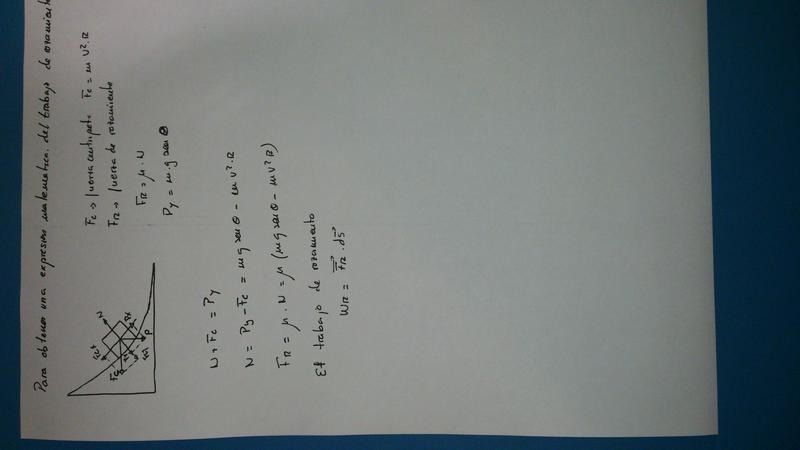 Para obtener una expresion matematica del trabajo de rozamiento
Fc → fuerza centripeta Fc = m v².R
FR → fuerza de rozamiento
FR = μ . N
Py = m.g sen θ
N
Fc
P
N + Fc = Py
N = Py - Fc = mg sen θ - m v².R
FR = μ . N = μ (mg sen θ - m v² R)
El trabajo de rozamiento
WR = FR . ds